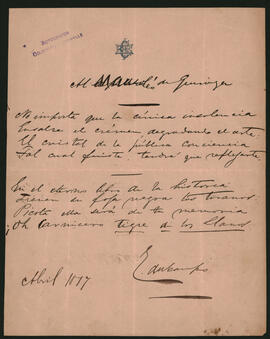 No importa que la cínica insolencia
Ensalce el crimen degradando el arte
El cristal de la pública conciencia
Tal cual fuiste tendrá que
En el eterno libro de la historia
tu foja negra los tiranos
Picota ella será de tu memoria
Oh carnicero tigre de los Llanos
Abril 1877